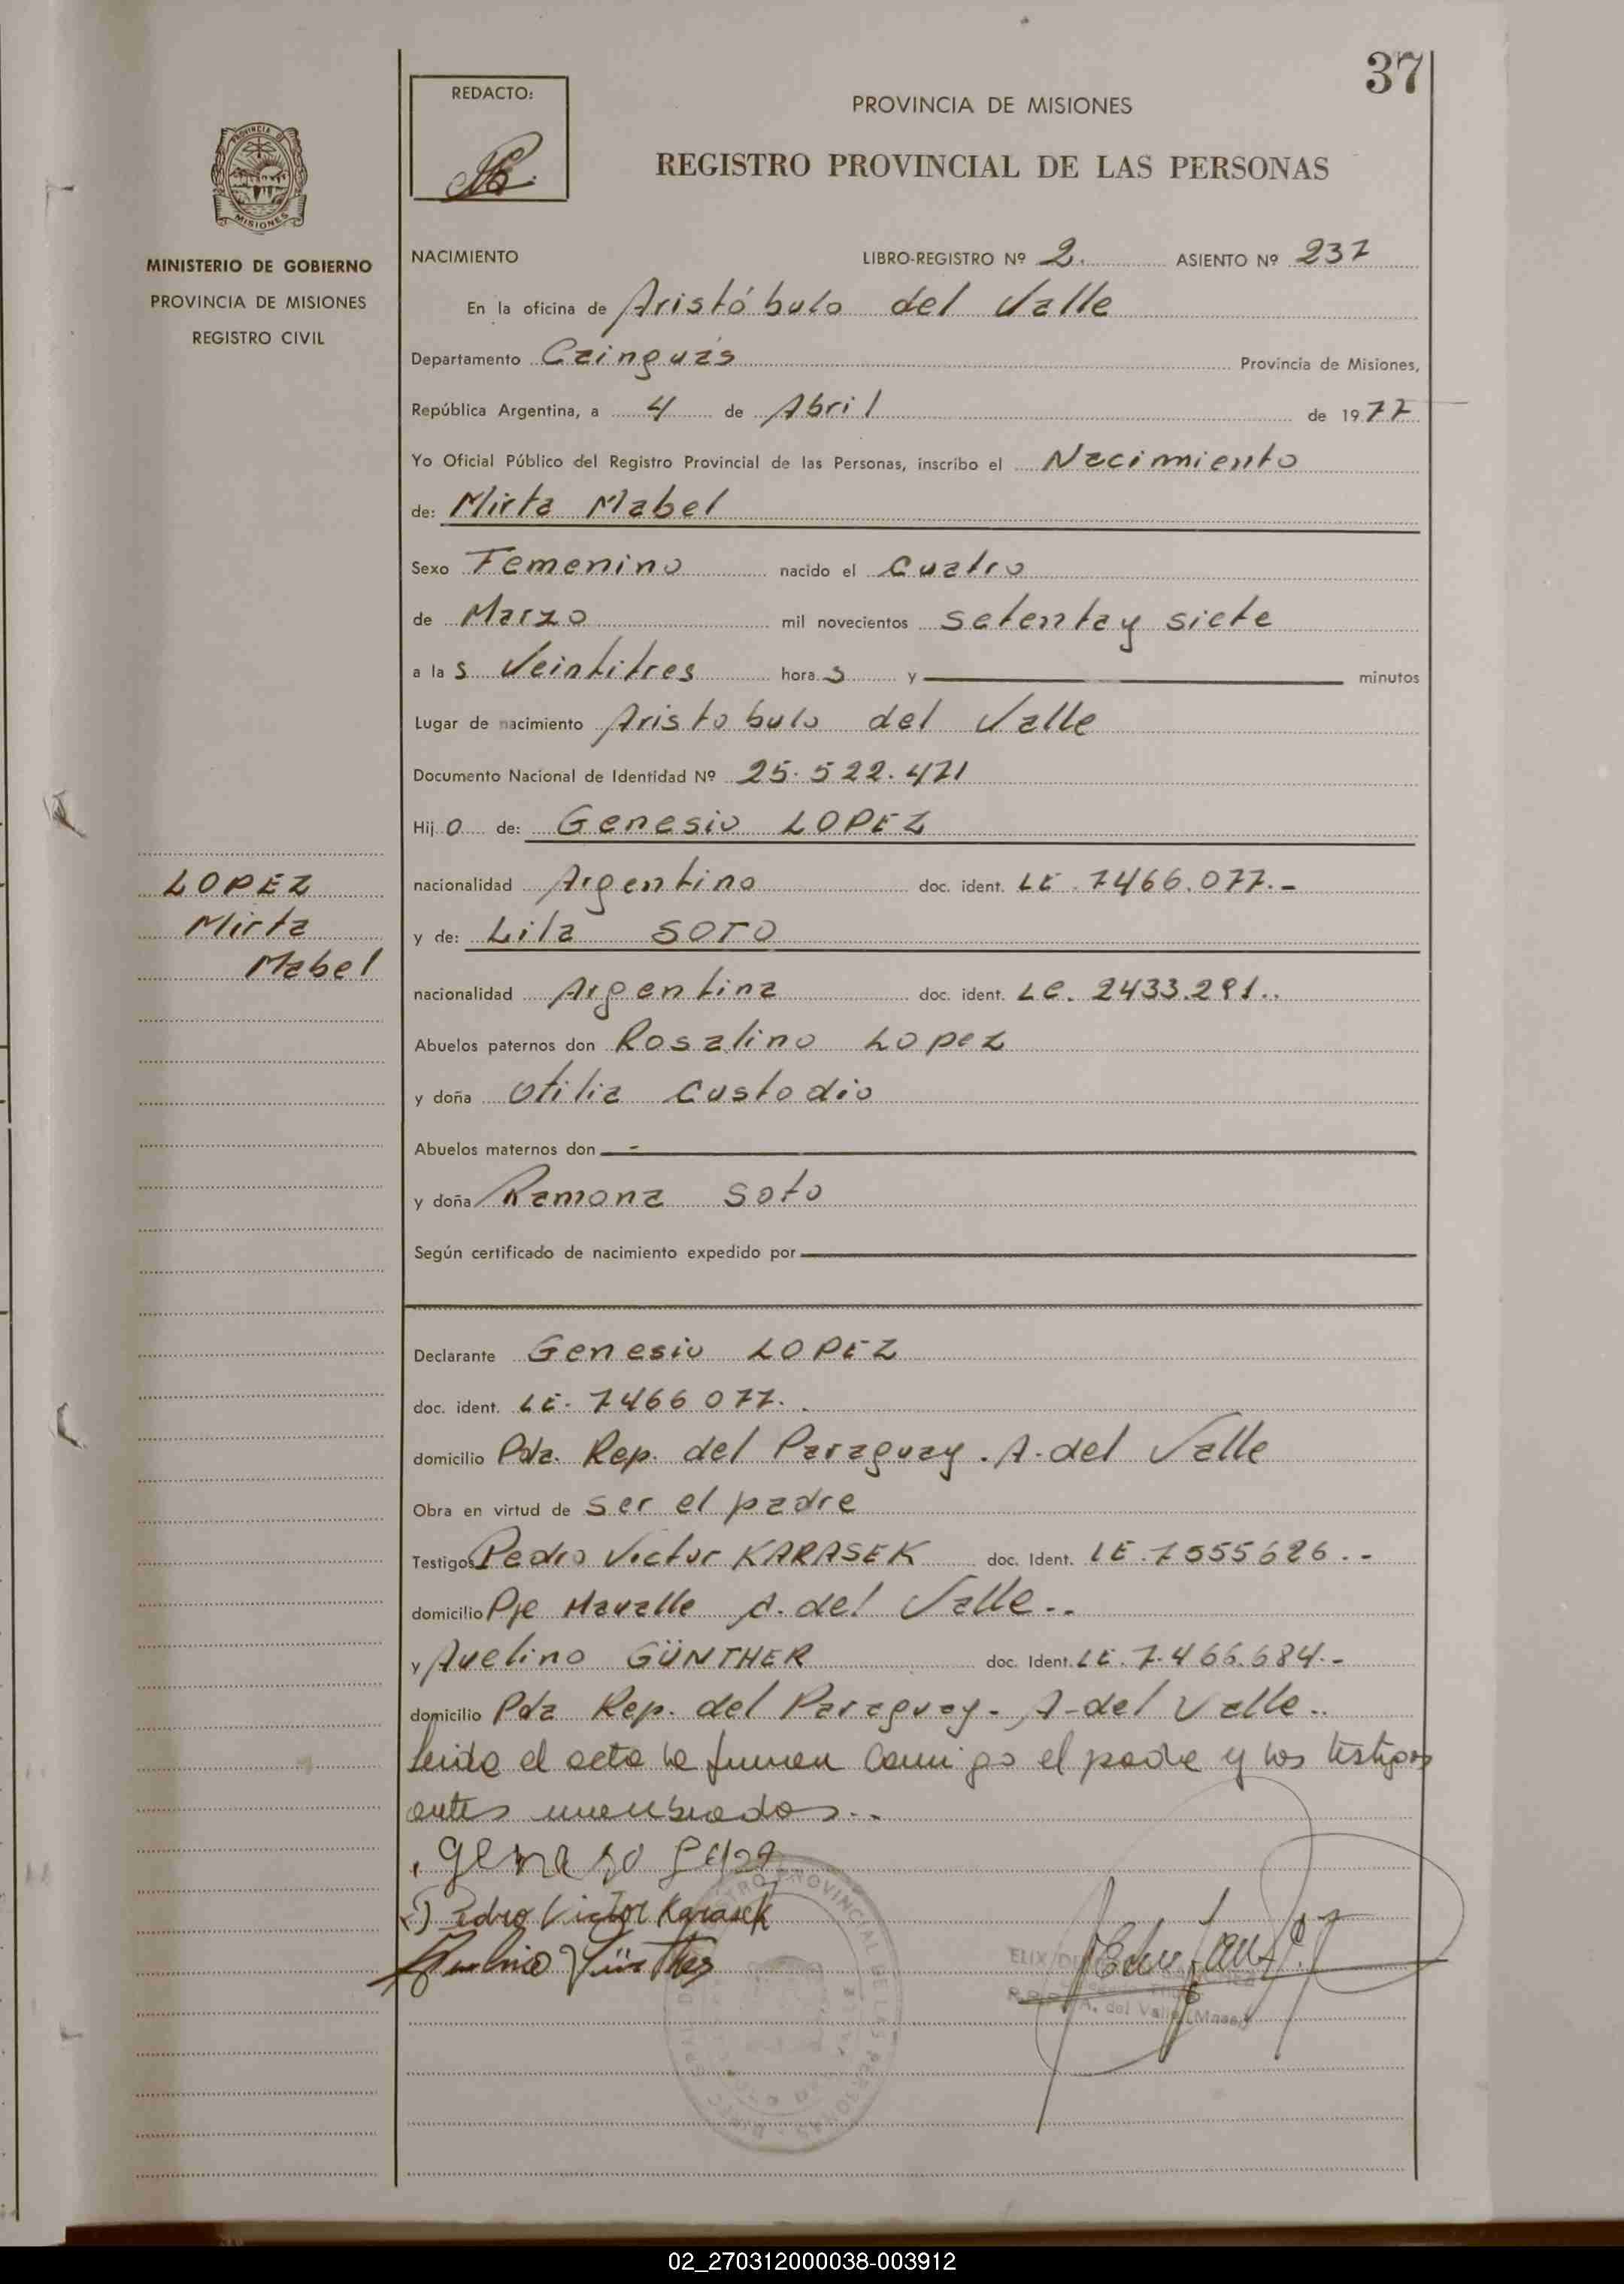 37
REDACTO:
PROVINCIA DE MISIONES
REGISTRO PROVINCIAL DE LAS PERSONAS
PROVINCIA DE
MISIONES
MINISTERIO DE GOBIERNO
PROVINCIA DE MISIONES
REGISTRO CIVIL
NACIMIENTO LIBRO-REGISTRO Nº 2. ASIENTO Nº 237
En la oficina de Aristóbulo del Valle
Departamento Cainguás Provincia de Misiones,
República Argentina, a 4 de Abril de 1977
Yo Oficial Público del Registro Provincial de las Personas, inscribo el Nacimiento
de: Mirta Mabel
Sexo Femenino nacido el Cuatro
de Marzo mil novecientos setenta y siete
a la s Veintitres hora s y minutos
Lugar de nacimiento Aristobulo del Valle
Documento Nacional de Identidad Nº 25.522.471
Hij o de: Genesio LOPEZ
nacionalidad Argentino doc. ident. LE. 7466.077.-
y de: Lila SOTO
nacionalidad Argentina doc. ident. LC. 2433.291..
Abuelos paternos don Rosalino Lopez
y doña Otilia Custodio
Abuelos maternos don -
y doña Ramona Soto
Según certificado de nacimiento expedido por
LOPEZ
Mirta
Mabel
Declarante Genesio LOPEZ
doc. ident. LE. 7466 077.
domicilio Pda. Rep. del Paraguay. A. del Valle
Obra en virtud de ser el padre
Testigos Pedro Victor KARASEK doc. Ident. LE. 7555626.-
domicilio Pje Mavalle A. del Valle..
y Avelino GÜNTHER doc. Ident. LE. 7.466.684.-
domicilio Pda Rep. del Paraguay. A-del Valle..
leida el acta la firman conmigo el padre y los testigos
antes nombrados..
Pedro Victor Karasek
A. del Valle (Mnes)
02_270312000038-003912